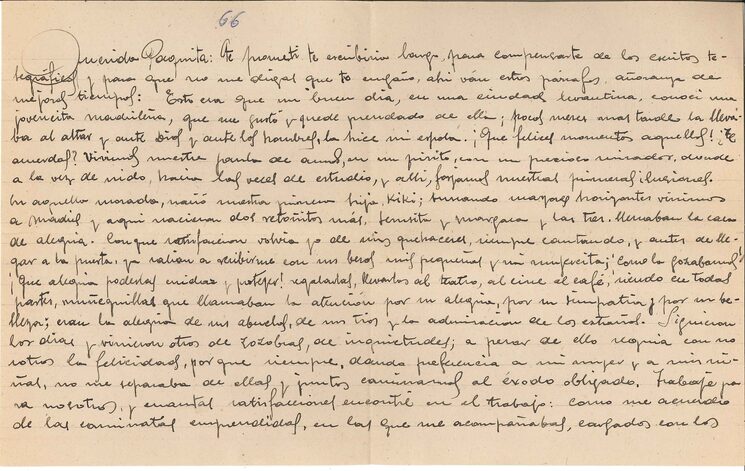 66
Querida Paquita: Te prometí te escribiría largo, para compensarte de los escritos te-
legráficos y para que no me digas que te engaño, ahí van estos párrafos, añoranza de
mejores tiempos: Esto era que un buen día, en una ciudad levantina, conocí una
jovencita madrileña, que me gustó y quedé prendado de ella; pocos meses mas tarde la lleva-
ba al altar y ante Dios y ante los hombres, la hice mi esposa. ¡Que felices momentos aquellos! ¿Te
acuerdas? Vivimos nuestra de amor, en un pisito, con un precioso mirador, donde
a la vez de nido, hacía las veces de estudio, y allí, forjamos nuestras primeras ilusiones.
En aquella morada, nació nuestra primera hija, Kiki; buscando mayores horizontes vinimos
a Madrid y aquí nacieron dos retoñitos más, y y las tres llenaban la casa
de alegría. Con que satisfacción volvía yo de mis quehaceres, siempre cantando, y antes de lle-
gar a la puerta, ya salían a recibirme con un beso mis pequeñas y mi mujercita; ¡como la gozabamos!
¡Que alegría poderlas cuidar y proteger! regalarlas, llevarlas al teatro, al cine el café, siendo en todas
partes, muñequillas que llamaban la atención por su alegría, por su simpatía y por su be-
lleza; eran la alegría de sus abuelos, de sus tíos y la admiración de los extraños. Siguieron
los días y vinieron otros de zozobras, de inquietudes; a pesar de ello seguía con no-
sotros la felicidad, porque siempre, dando preferencia a mi mujer y a mis ni-
ñas, no me separaba de ellas y juntos caminamos al éxodo obligado. Trabajé pa-
ra vosotros, y cuantas satisfacciones encontré en el trabajo: como me acuerdo
de las caminatas emprendidas, en las que me acompañabas, cargados con los